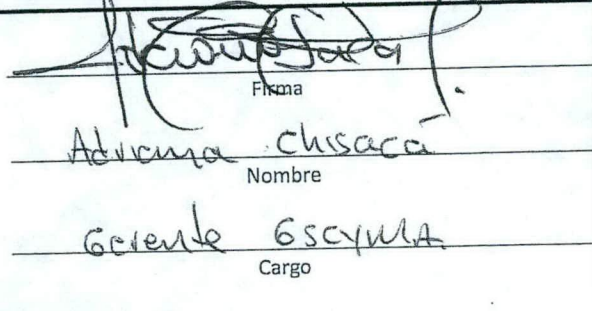 Firma
Adriana Chisacá
Nombre
Gerente ESCYMA
Cargo